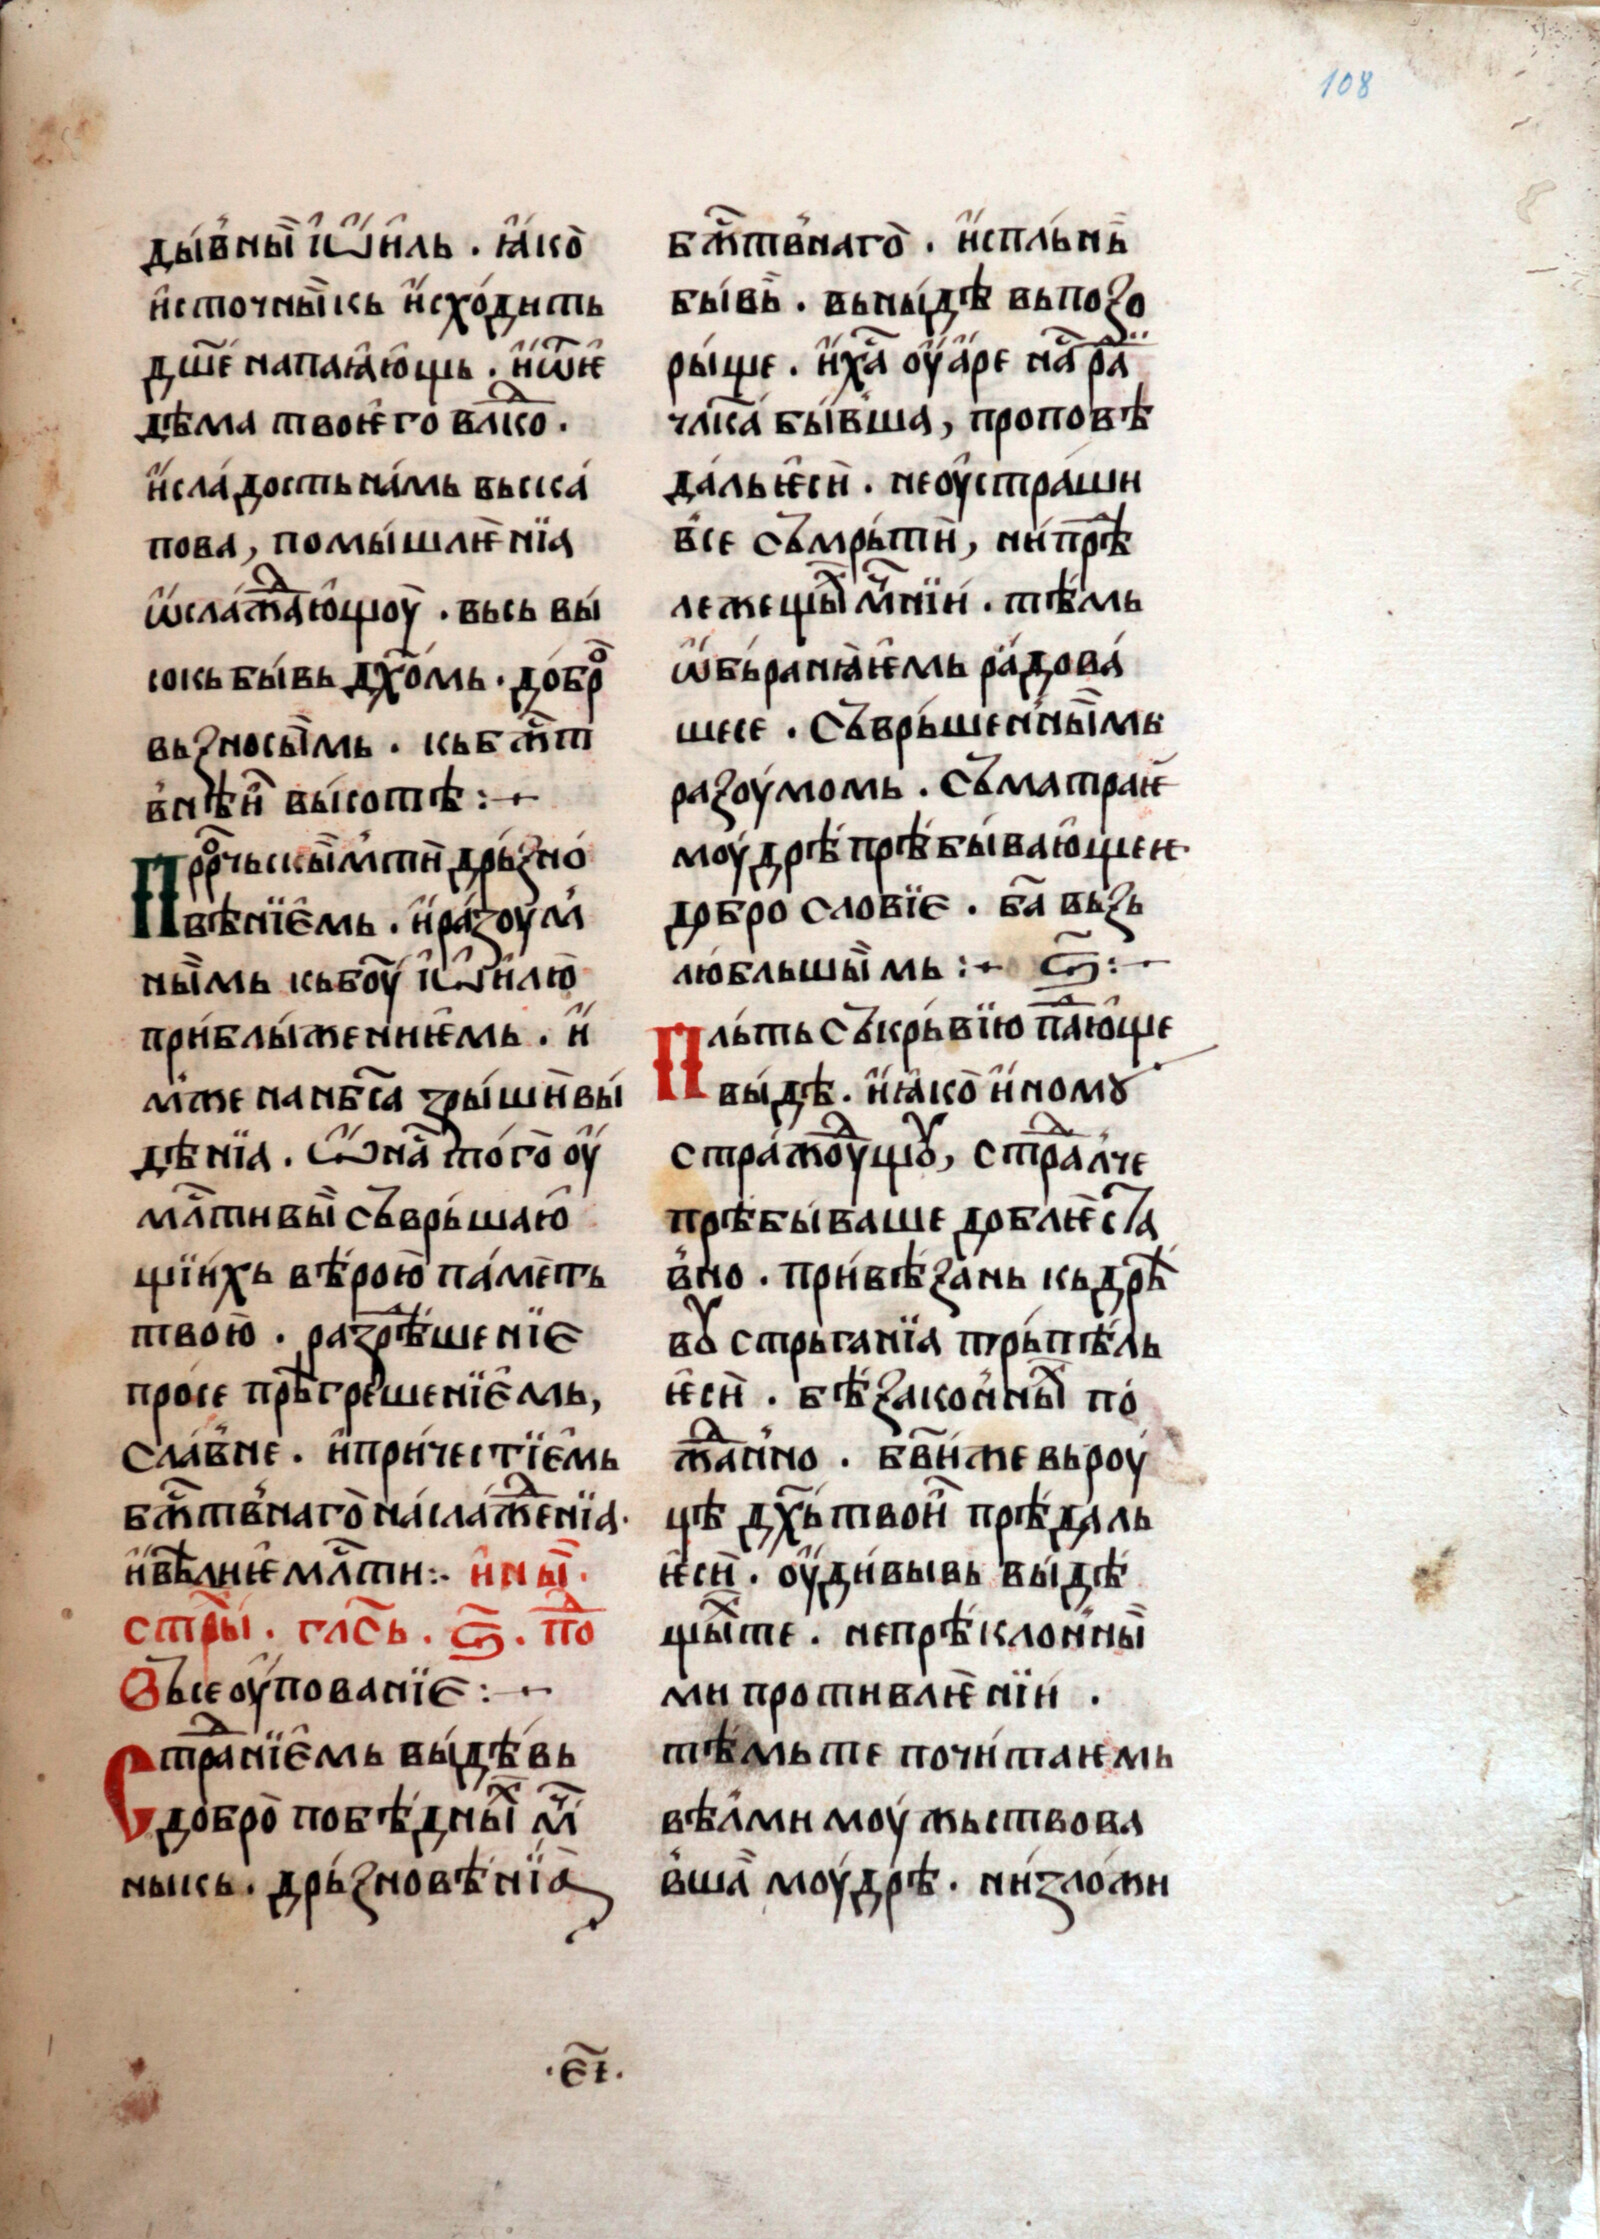 108
дыв̾ны̏ їѡ҆иль . ꙗ҆ко̀
и҆сточны̏кь и҆схо́дить
дш҃е напаꙗ҆ю҆щь . и҆ѿѥ
дѣма твоѥго влⷣко .
и҆сла́дость на́мь вьска́
пова, помы́шлѥнїа
ѡ҆сла́жⷣаю҆щоу̀ . вьсь вы́
сокь бы́вь дх҃омь . до́брⷪ
вьзносы̏мь . кьбж҃т
в̾нѣи҆ вы́сотѣ :~
Прⷪ҇рчьскы̏м̾ти дрь́зно́
вѣнїе҆мь . и҆ра́зоум̾
ны̏мь кьбо҃у їѡ҆илю̀
при́блы́женнѥмь . и҆
м̾же нанб҃са зры́шивы́
дѣнїа . ѡ҆на҃ то́го̀ оу҆
мл҃тивы̏ съврь́шаю҆
щїи́хь вѣ́рою̀ па́меть
твою̀ . разрѣ́шенїе
про́се прѣ́грешенїе҆мь,
сла́в̾не . и҆при́чести́е҆мь
бж҃тв̾наго̀ на́слажⷣенїа .
и҆вѣ́лиѥ мл҃ти :· и҆ны̏ .
стр҃ы́ . гла҃сь . ѕ҃ . поⷣ
Ѳъсеоу҆пованїе :~
Страⷣнїе҆мь вы́дѣ́вь
добро̀ побѣ́дныⷯ мⷱ҇
ныкь . дрь́зновѣ́нїа
бж҃тв̾наго̀ . и҆спль́нь
бы́вь . вьны́дѣ вьпозо
ры́ще . и҆ха҃ оу҆а҆ре на́ раⷣ
чл҃ка́ бы́вша, проповѣ
да́льѥсѝ . неоу҆стра́ши
в̾се съмрь́ти, ни́прѣⷣ
лежещыⷯ мⷱ҇нїи . тѣ́мь
ѡ҆бь́ранꙗѥмь ра́дова́
шесе . съврь́шен̾ны̏мь
разоу́момь . съматраѥ
моу́дрѣ прѣбы́ваю҆щеѥ
добро словїе . ба҃ вьзь
лю́бльшы̏мь :~ ѕ҃ :~
Пль́ть съкрь́вїю паⷣю҆ще
вы́дѣ . и҆ꙗ҆ко̀ и҆номꙋ
стра́жⷣоущꙋ, страⷣл̾че
прѣбы́ваше доблѥста
в̾но . при́вѣзань кьдрѣ́
вꙋ стрьганїа трь́пѣль
ѥсѝ . бѣзакон̾ныⷯ по́
жⷣан̾но . бв҃и́же вьроу́
цѣ дх҃ь твои҆ прѣ́даль
ѥсѝ . оу҆ди́вывь вы́дѣ
щыⷯте . непрѣ́клон̾ны̏
ми проти́влѥнїи .
тѣ́мьте почи́таѥмь
вѣ́лми моу́жьствова
в̾ша̀ моу́дрѣ . ни́зложи
· є҃і ·